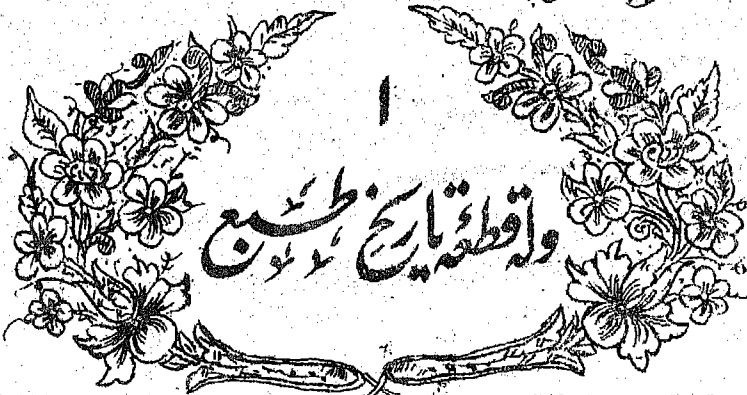 ۱
ولہ قطعۂ تاریخ طبع